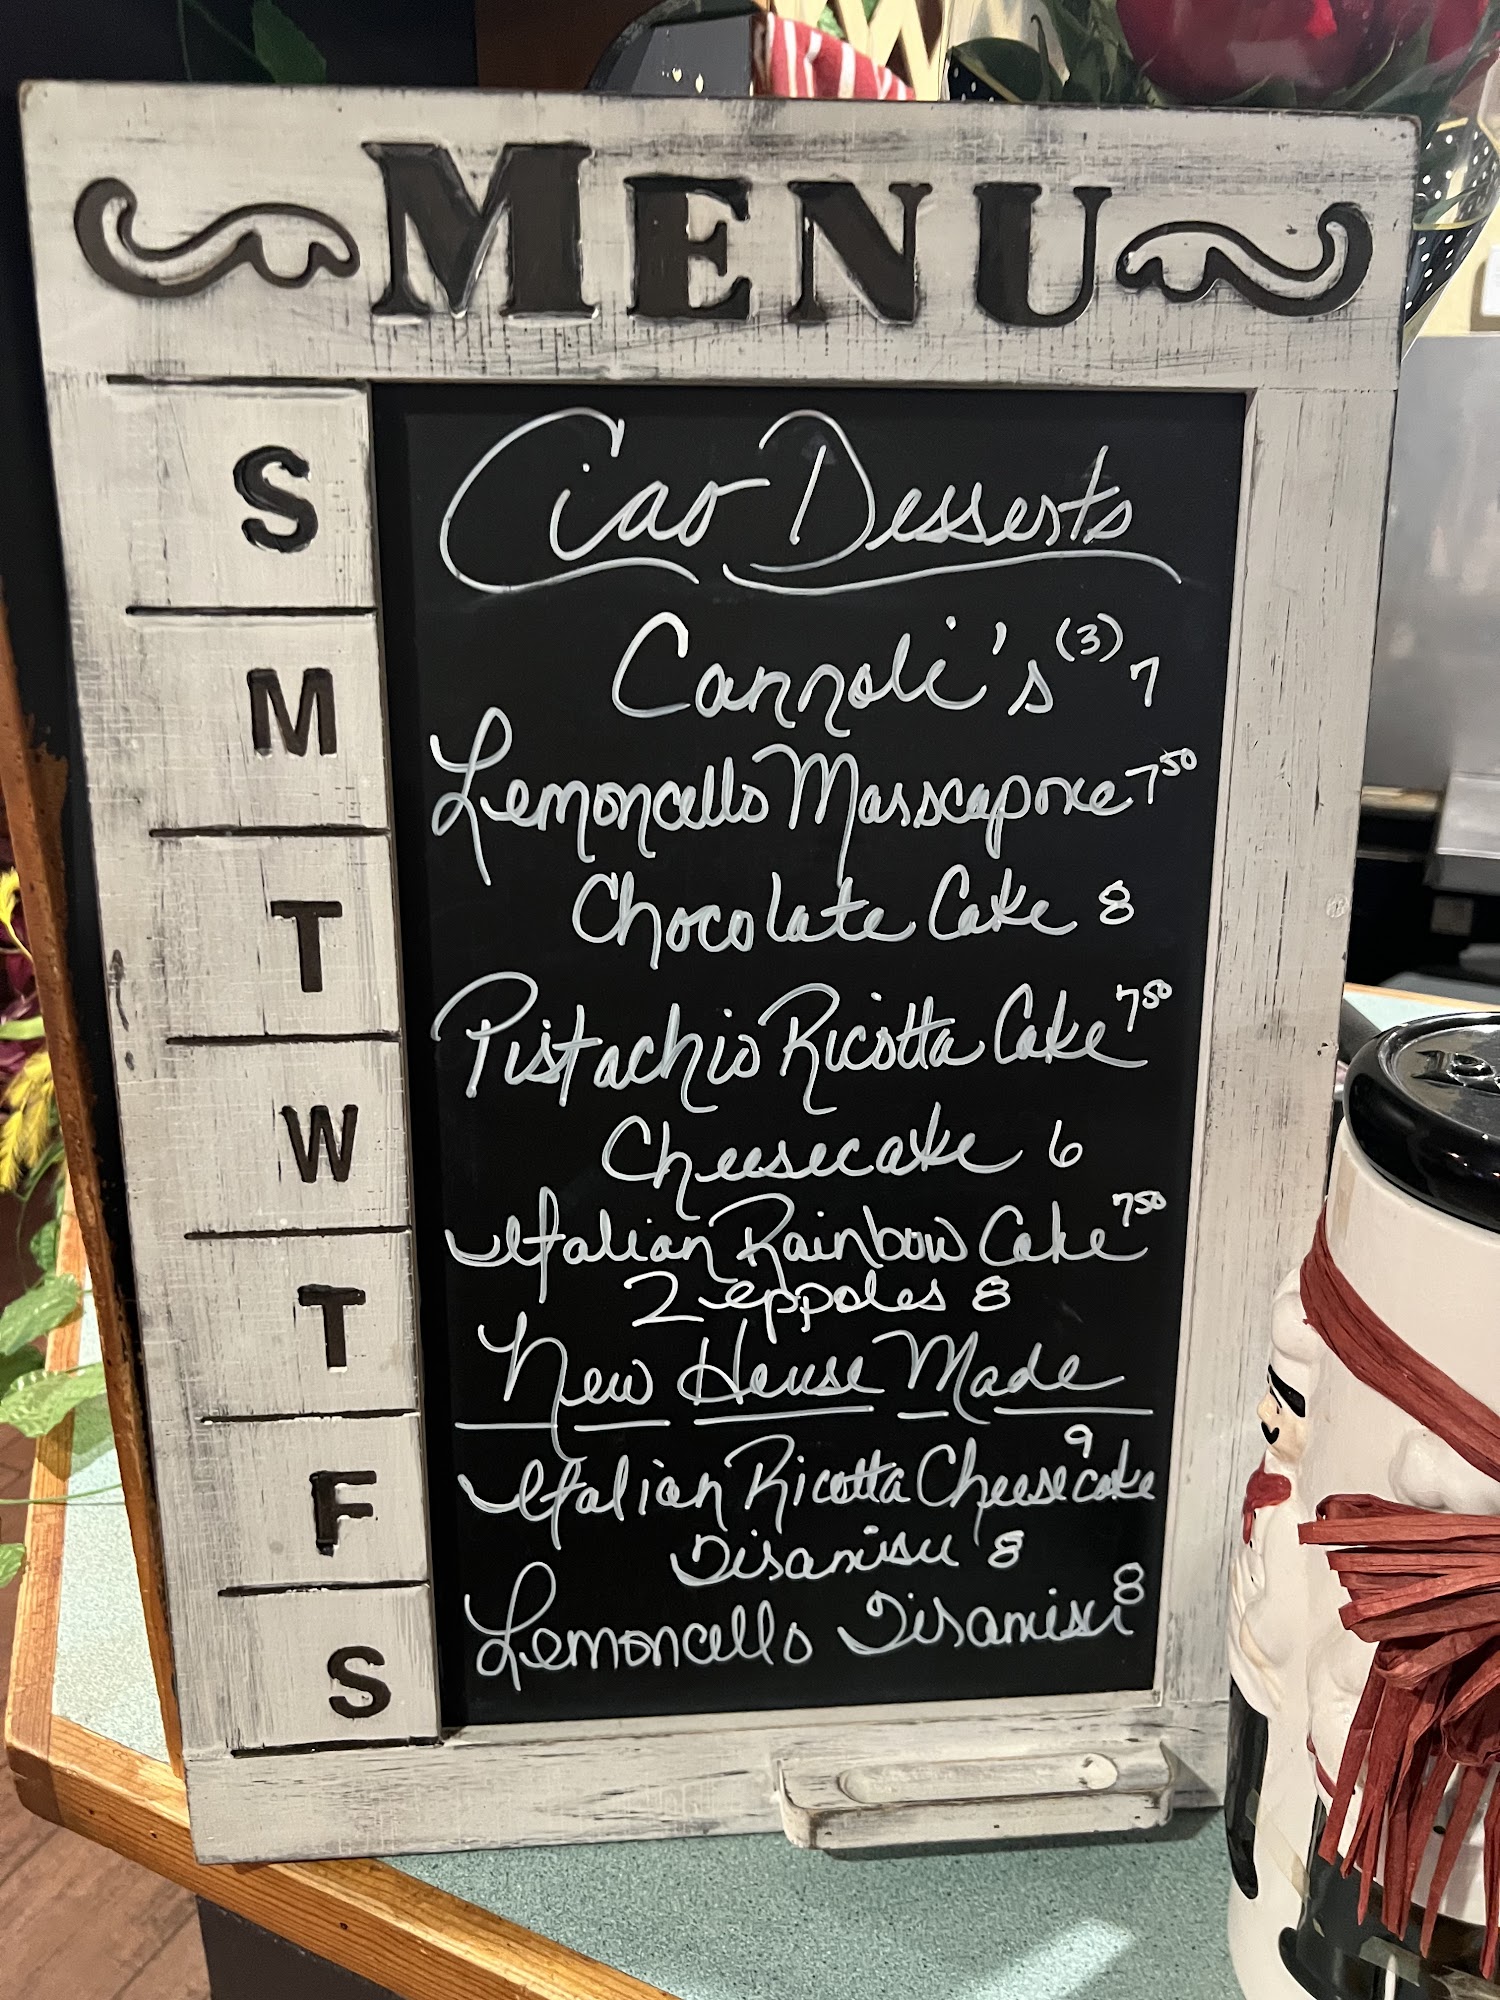 MENU
S
M
T
W
T
F
S
Ciao Desserts
Cannoli's (3) 7
Lemoncello Masscapone 7 50
Chocolate Cake 8
Pistachio Ricotta Cake 7 50
Cheesecake 6
Italian Rainbow Cake 7 50
Zeppoles 8
New House Made
Italian Ricotta Cheesecake 9
Tiramisu 8
Lemoncello Tiramisu 8